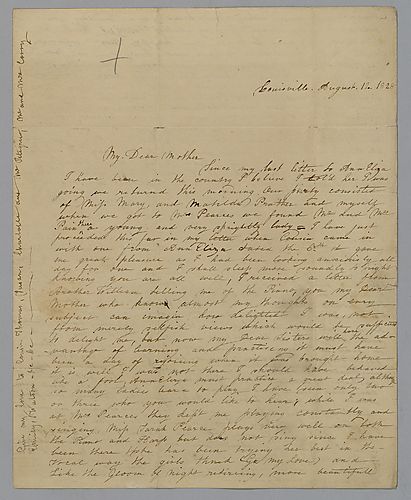 Louisville. August. 12. 1828
My Dear Mother
Since my last letter to Ann Eliza
I have been in the country I believe I told her I was
going we returned this morning Our party consisted
of Miss Mary, and Matilda Prather and myself
when we got to Mrs Pearces we found Mr and Mrs
a young and very sprightly lady I have just
this far in my letter when Louisa came in
with one from Ann Eliza dated the 3d it gave
me great pleasure as I had been looking anxiously all
day for one and I shall sleep more soundly to night
knowing you are all well, I received a letter from
brother William telling me of the Piano, you my Dear
Mother who know almost my thoughts on every
subject can imagin how delighted I was, not
from merely selfish views which would be sufficient
to delight me, but now my Dear sisters will the ad-
vantage of learning and practising it must have
been a day of rejoicing when it was brought home
it is well I was not there I should have behaved
like a fool, Ann Eliza must practise a great deal, although
so many choices learn to play I have seen only two
or three who you would like to hear, while I was
at Mrs Pearces they kept me playing constantly and
singing Miss Sarah Pearce plays very well on both
the Piano and Harp but does not sing since I have
been there she has been trying her best in the
vocal way the girls think (Oh my Love) and
Like the gloom of night retiring, more beautifull
Give my love to